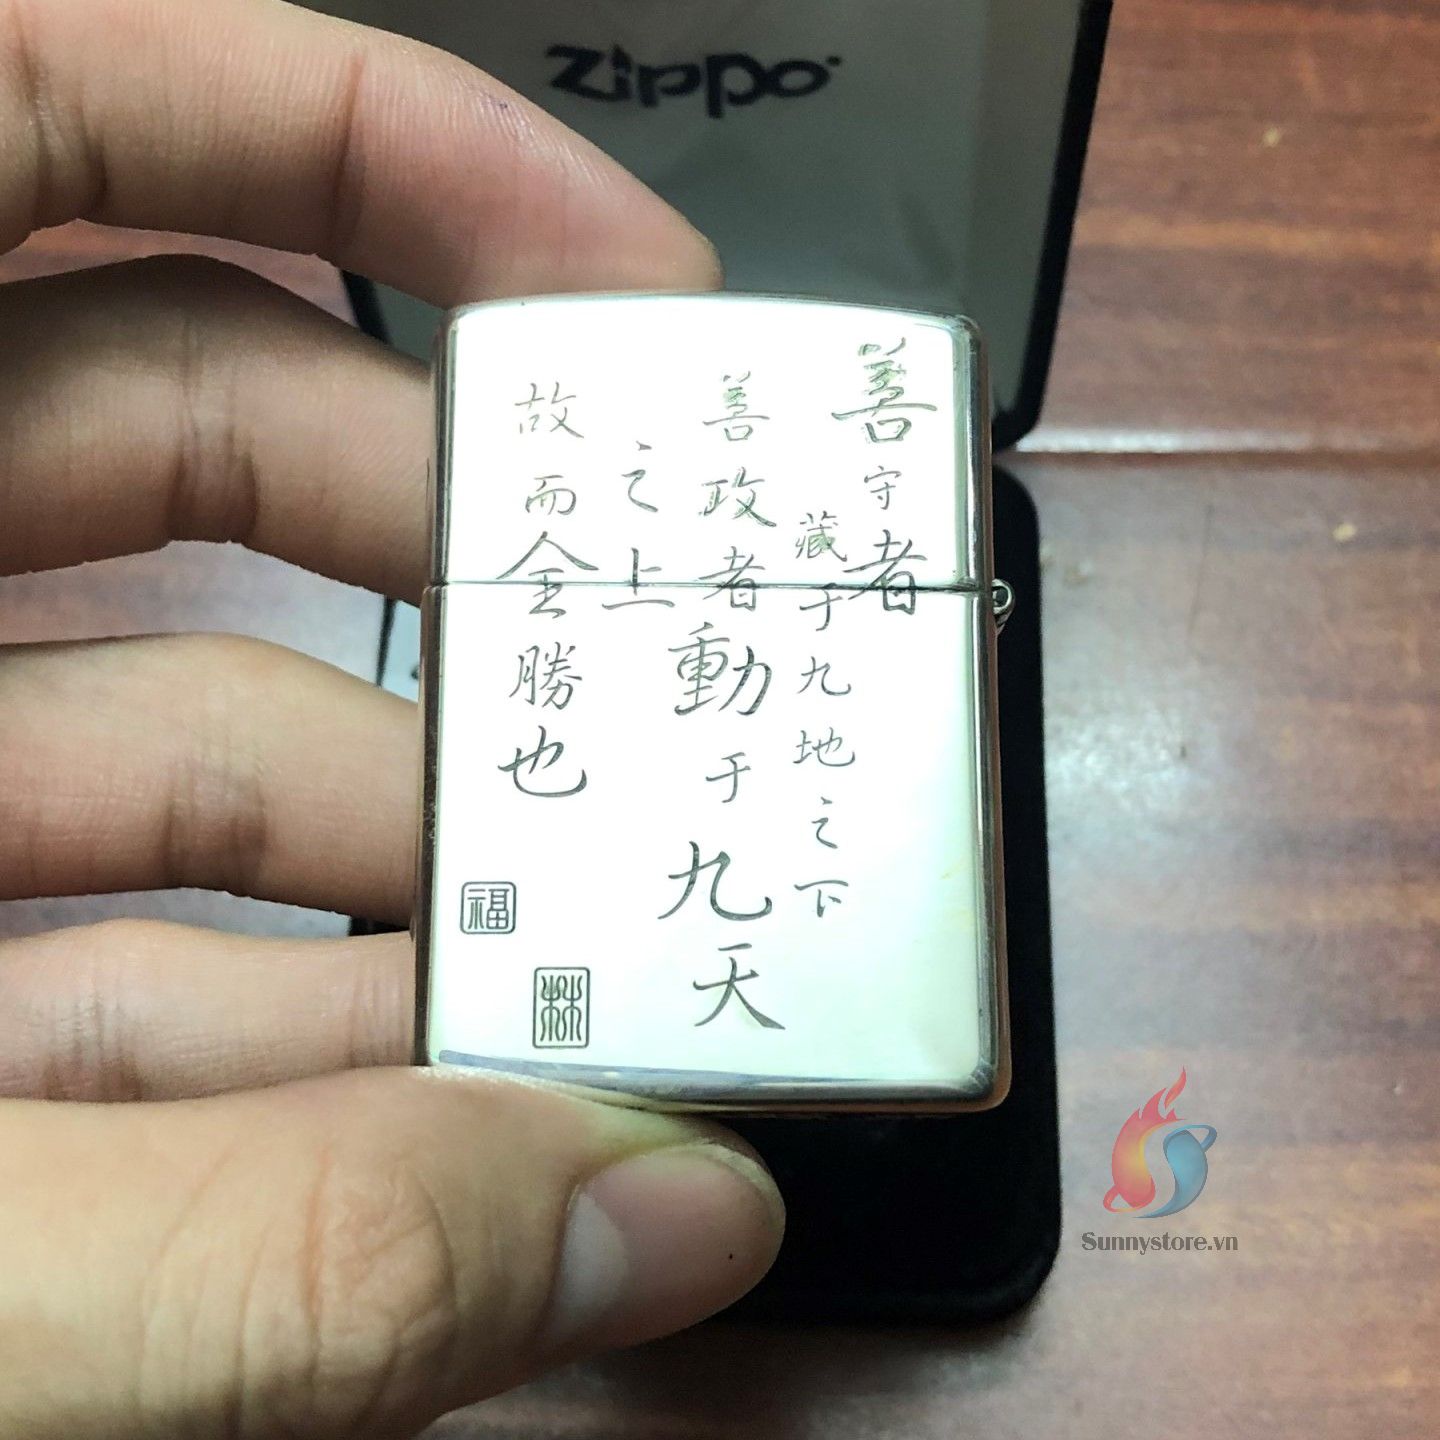 Zippo
善守者
藏于九地之下
善政者動于九天
之上
故而全勝也
福
林
Sunnystore.vn